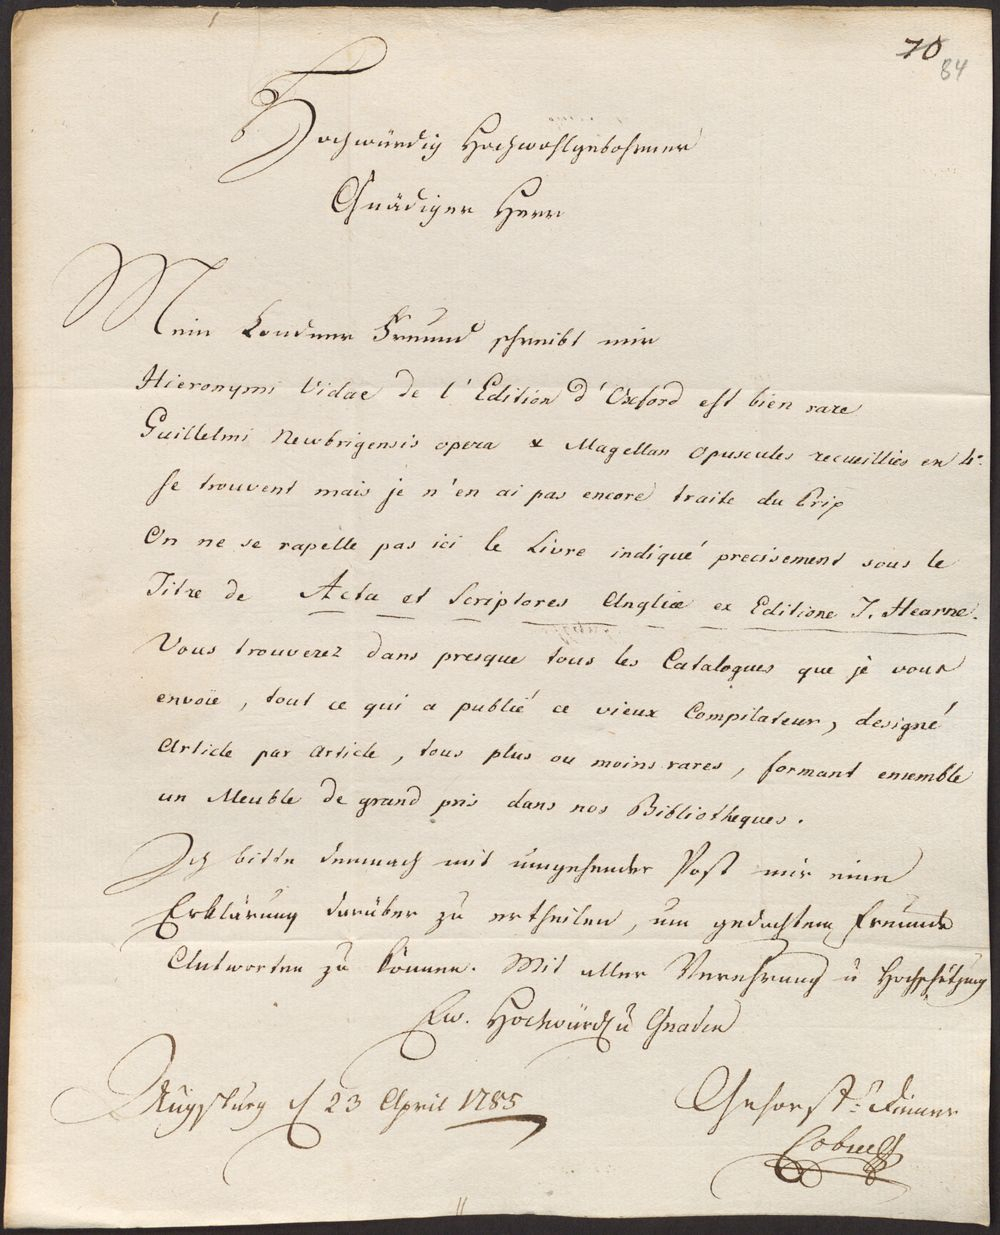 70
84
Hochwürdig Hochwohlgebohrner
Gnädiger Herr
Mein Londner Freund schreibt mir
Hieronymi Vidae de l'Edition d'Oxford est bien rare
Guillelmi Newbrigensis opera & Magellan opuscules recueillies en 4°.
se trouvent mais je n'en ai pas encore traite du Prix
On ne se rapelle pas ici le Livre indiqué precisement sous le
Titre de Acta et Scriptores Angliæ ex Editione T. Hearne.
Vous trouverez dans presque tous les Catalogues que je vous
envoïe, tout ce qui a publié ce vieux Compilateur, designé
Article par Article, tous plus ou moins rares, formant ensemble
un Meuble de grand pris dans nos Bibliotheques.
Ich bitte demnach mit umgehender Post mir eine
Erklärung darüber zu ertheilen, um gedachtem Freunde
Antworten zu können. Mit aller Verehrung u Hochschätzung
Ew. Hochwürd u Gnaden
Augsburg d 23 April 1785
Gehorst: Diener
Cobres